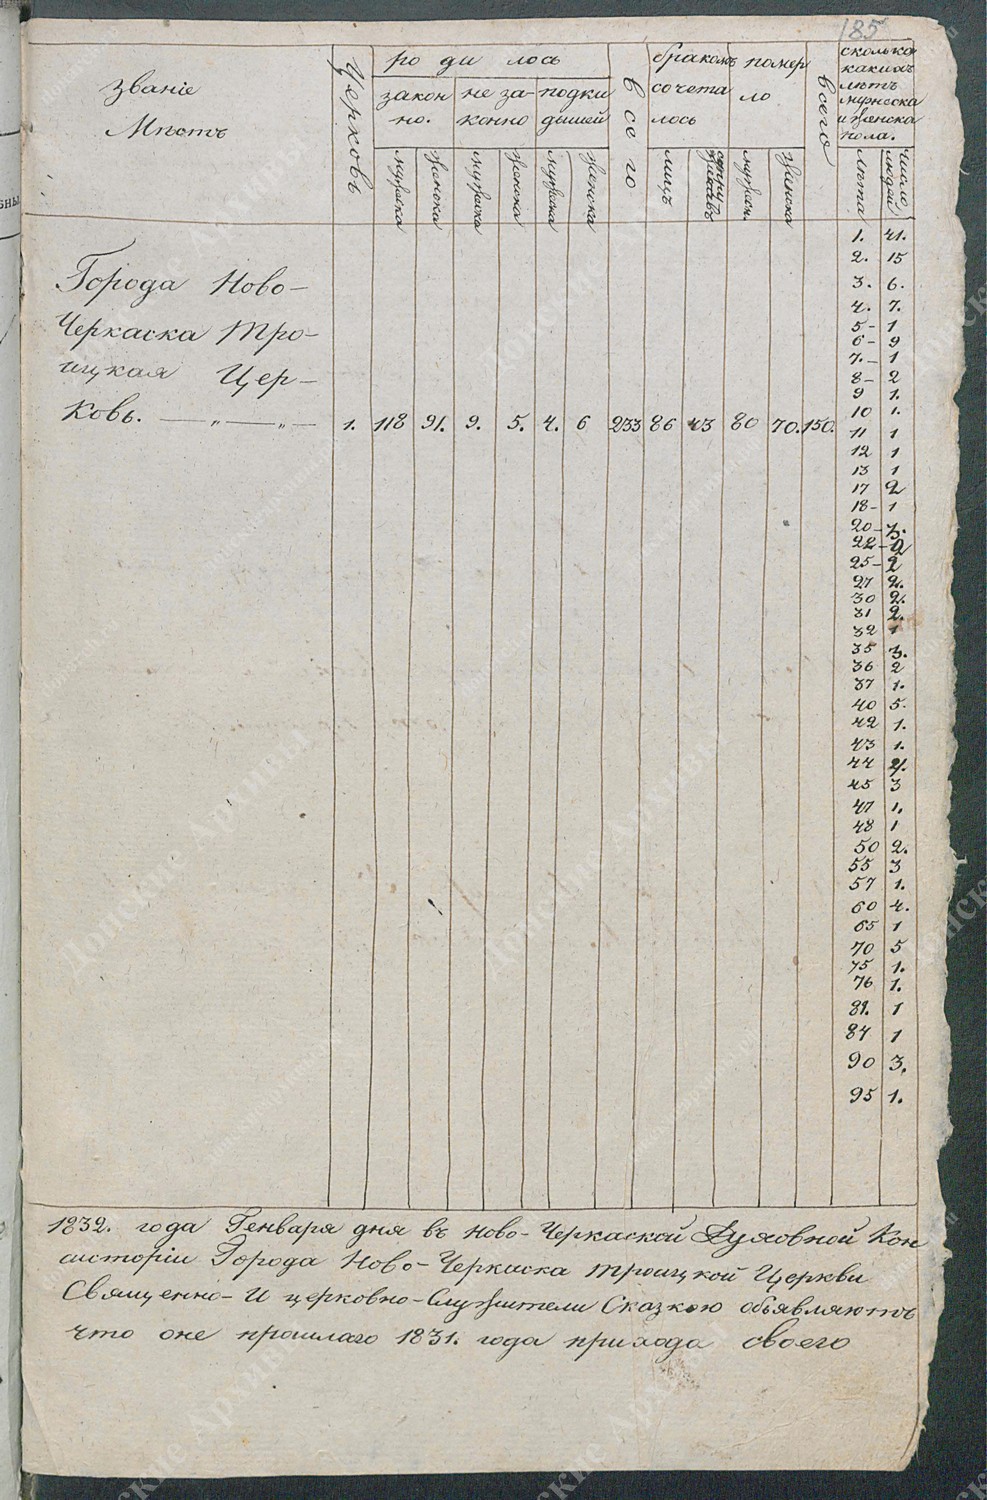 185
Званіе
Мѣстъ
Церковь
ро ди лось
закон
но.
не за-
конно
подки
дышей
всего
бракомъ
сочета
лось
помер
ло
всего
сколько
какихъ
лѣтъ
мужеска
и женска
пола.
мужеска
женска
мужеска
женска
мужеска
женска
лицъ
мужеск.
женска
Лѣта
число
людей
Города Ново-
Черкаска Тро-
ицкая Цер-
ковь. — „ — „ —
1. 118 91. 9. 5. 4. 6 233 86 43 80 70. 150.
1. 41.
2. 15
3. 6.
4. 7.
5- 1
6- 9
7.- 1
8- 2
9 1.
10 1.
11 1
12 1
13 1
17 2
18- 1
20- 3.
22- 2
25- 2
27 2.
30 2.
31 2.
32 1
35 3.
36 2
37 1.
40 5.
42 1.
43 1.
44 4.
45 3
47 1.
48 1
50 2.
55 3
57 1.
60 4.
65 1
70 5
75 1.
76 1.
81. 1
84 1
90 3.
95 1.
1832. года Генваря дня въ Ново-Черкаской Духовной Кон
систоріи Города Ново-Черкаска Троицкой Церкви
Священно- и церковно-служители Сказкою объявляютъ
что оне прошлаго 1831. года прихода своего